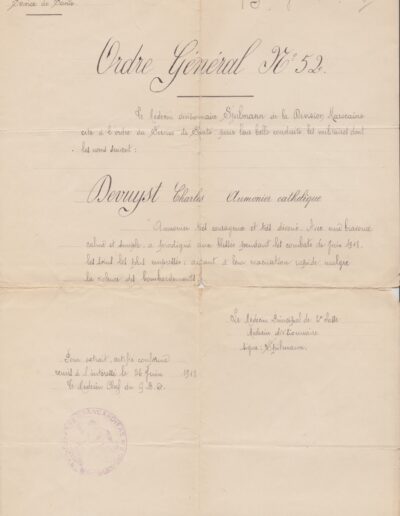 Service de Santé
Ordre Général N° 52.
Le Médecin divisionnaire Spilmann de la Division Marocaine
cite à l'ordre du Service de Santé pour leur belle conduite les militaires dont
les noms suivent :
Devuyst Charles Aumonier catholique
"Aumonier très courageux et très dévoué. Avec une bravoure
calme et simple, a prodigué aux blessés pendant les combats de Juin 1918.
les soins les plus empressés; aidant à leur évacuation rapide malgré
la violence des bombardements.
Le Médecin Principal de 2e classe
Médecin divisionnaire
signé: Spilmann.
Pour extrait certifié conforme
remis à l'intéressé le 26 Juin 1918
Le Médecin Chef du G.B.D.